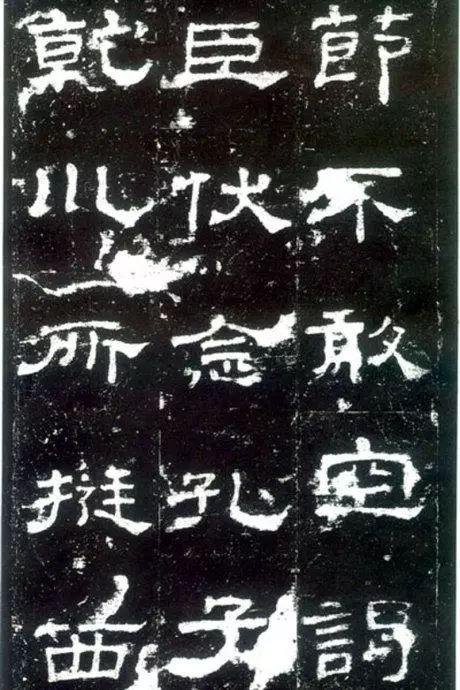 節不敢空謁
臣伏念孔子
乾巛所挺西